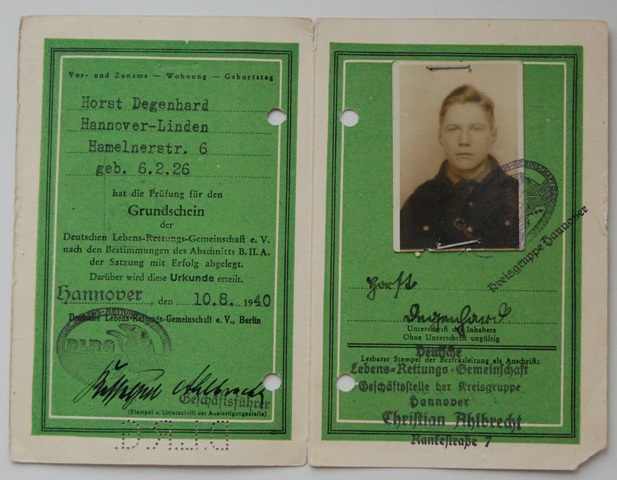 Vor- und Zuname — Wohnung — Geburtstag
Horst Degenhard
Hannover-Linden
Hamelnerstr. 6
geb. 6.2.26
hat die Prüfung für den
Grundschein
der
Deutschen Lebens-Rettungs-Gemeinschaft e. V.
nach den Bestimmungen des Abschnitts B. II. A.
der Satzung mit Erfolg abgelegt.
Darüber wird diese Urkunde erteilt.
Hannover, den 10.8. 1940
Deutsche Lebens-Rettungs-Gemeinschaft e. V., Berlin
DLRG
Ahlbrecht
Geschäftsführer
(Stempel u. Unterschrift der Ausfertigungsstelle)
D.L.R.G
Kreisgruppe Hannover
Horst
Degenhard
Unterschrift des Inhabers
Ohne Unterschrift ungültig
Lesbarer Stempel der Bezirksleitung als Anschrift:
Deutsche
Lebens-Rettungs-Gemeinschaft
Geschäftsstelle der Kreisgruppe
Hannover
Christian Ahlbrecht
Rankestraße 7